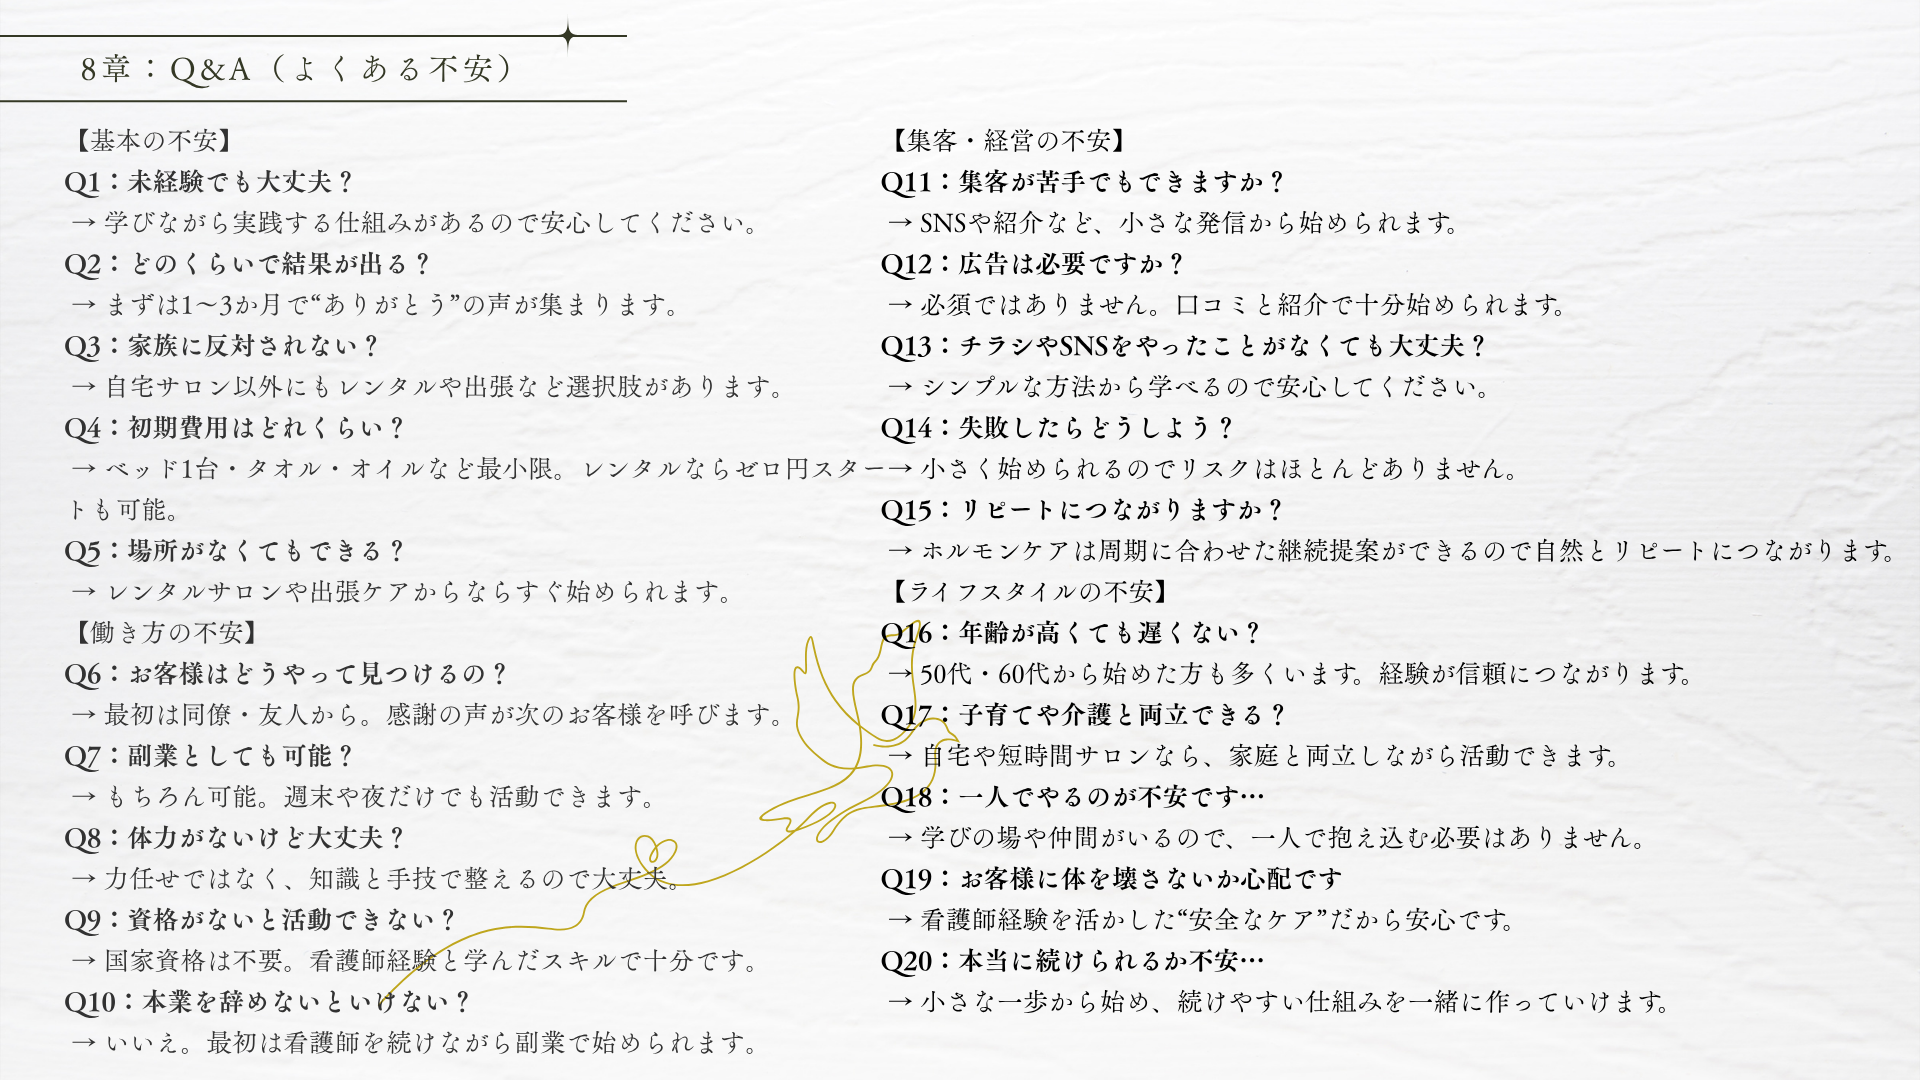 8章：Q&A（よくある不安）
【基本の不安】
Q1：未経験でも大丈夫？
→ 学びながら実践する仕組みがあるので安心してください。
Q2：どのくらいで結果が出る？
→ まずは1〜3か月で“ありがとう”の声が集まります。
Q3：家族に反対されない？
→ 自宅サロン以外にもレンタルや出張など選択肢があります。
Q4：初期費用はどれくらい？
→ ベッド1台・タオル・オイルなど最小限。レンタルならゼロ円スター
トも可能。
Q5：場所がなくてもできる？
→ レンタルサロンや出張ケアからならすぐ始められます。
【働き方の不安】
Q6：お客様はどうやって見つけるの？
→ 最初は同僚・友人から。感謝の声が次のお客様を呼びます。
Q7：副業としても可能？
→ もちろん可能。週末や夜だけでも活動できます。
Q8：体力がないけど大丈夫？
→ 力任せではなく、知識と手技で整えるので大丈夫。
Q9：資格がないと活動できない？
→ 国家資格は不要。看護師経験と学んだスキルで十分です。
Q10：本業を辞めないといけない？
→ いいえ。最初は看護師を続けながら副業で始められます。
【集客・経営の不安】
Q11：集客が苦手でもできますか？
→ SNSや紹介など、小さな発信から始められます。
Q12：広告は必要ですか？
→ 必須ではありません。口コミと紹介で十分始められます。
Q13：チラシやSNSをやったことがなくても大丈夫？
→ シンプルな方法から学べるので安心してください。
Q14：失敗したらどうしよう？
→ 小さく始められるのでリスクはほとんどありません。
Q15：リピートにつながりますか？
→ ホルモンケアは周期に合わせた継続提案ができるので自然とリピートにつながります。
【ライフスタイルの不安】
Q16：年齢が高くても遅くない？
→ 50代・60代から始めた方も多くいます。経験が信頼につながります。
Q17：子育てや介護と両立できる？
→ 自宅や短時間サロンなら、家庭と両立しながら活動できます。
Q18：一人でやるのが不安です…
→ 学びの場や仲間がいるので、一人で抱え込む必要はありません。
Q19：お客様に体を壊さないか心配です
→ 看護師経験を活かした“安全なケア”だから安心です。
Q20：本当に続けられるか不安…
→ 小さな一歩から始め、続けやすい仕組みを一緒に作っていけます。